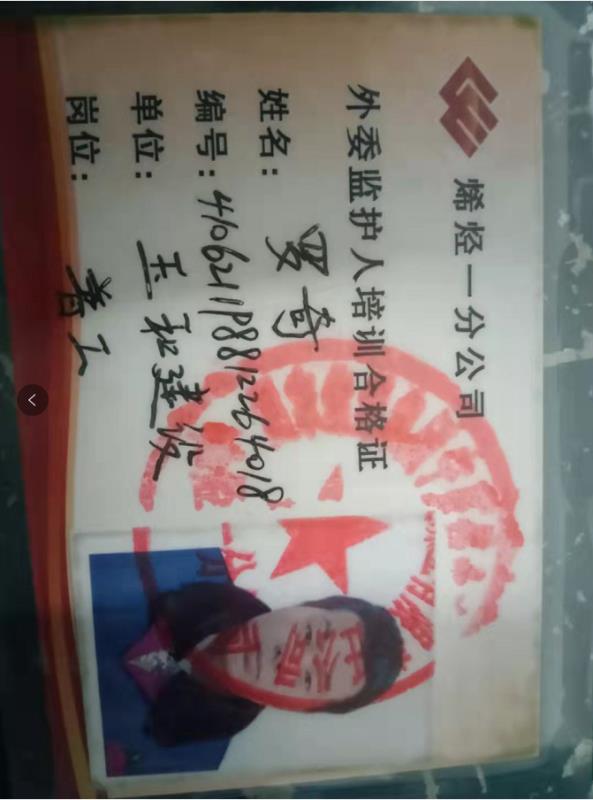 烯烃一分公司
外委监护人培训合格证
姓名：罗奇
编号：410621198812264018
单位：玉和建设
岗位：普工